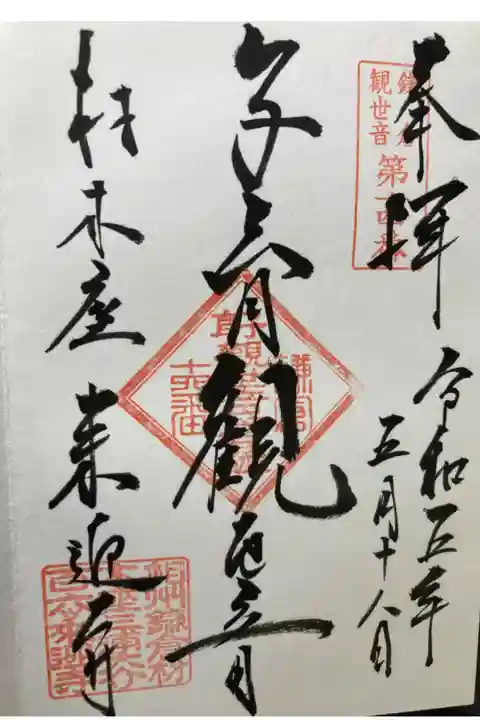 奉拝
令和五年
五月十八日
子安観世音
材木座
来迎寺
鎌倉
観世音
第十四番